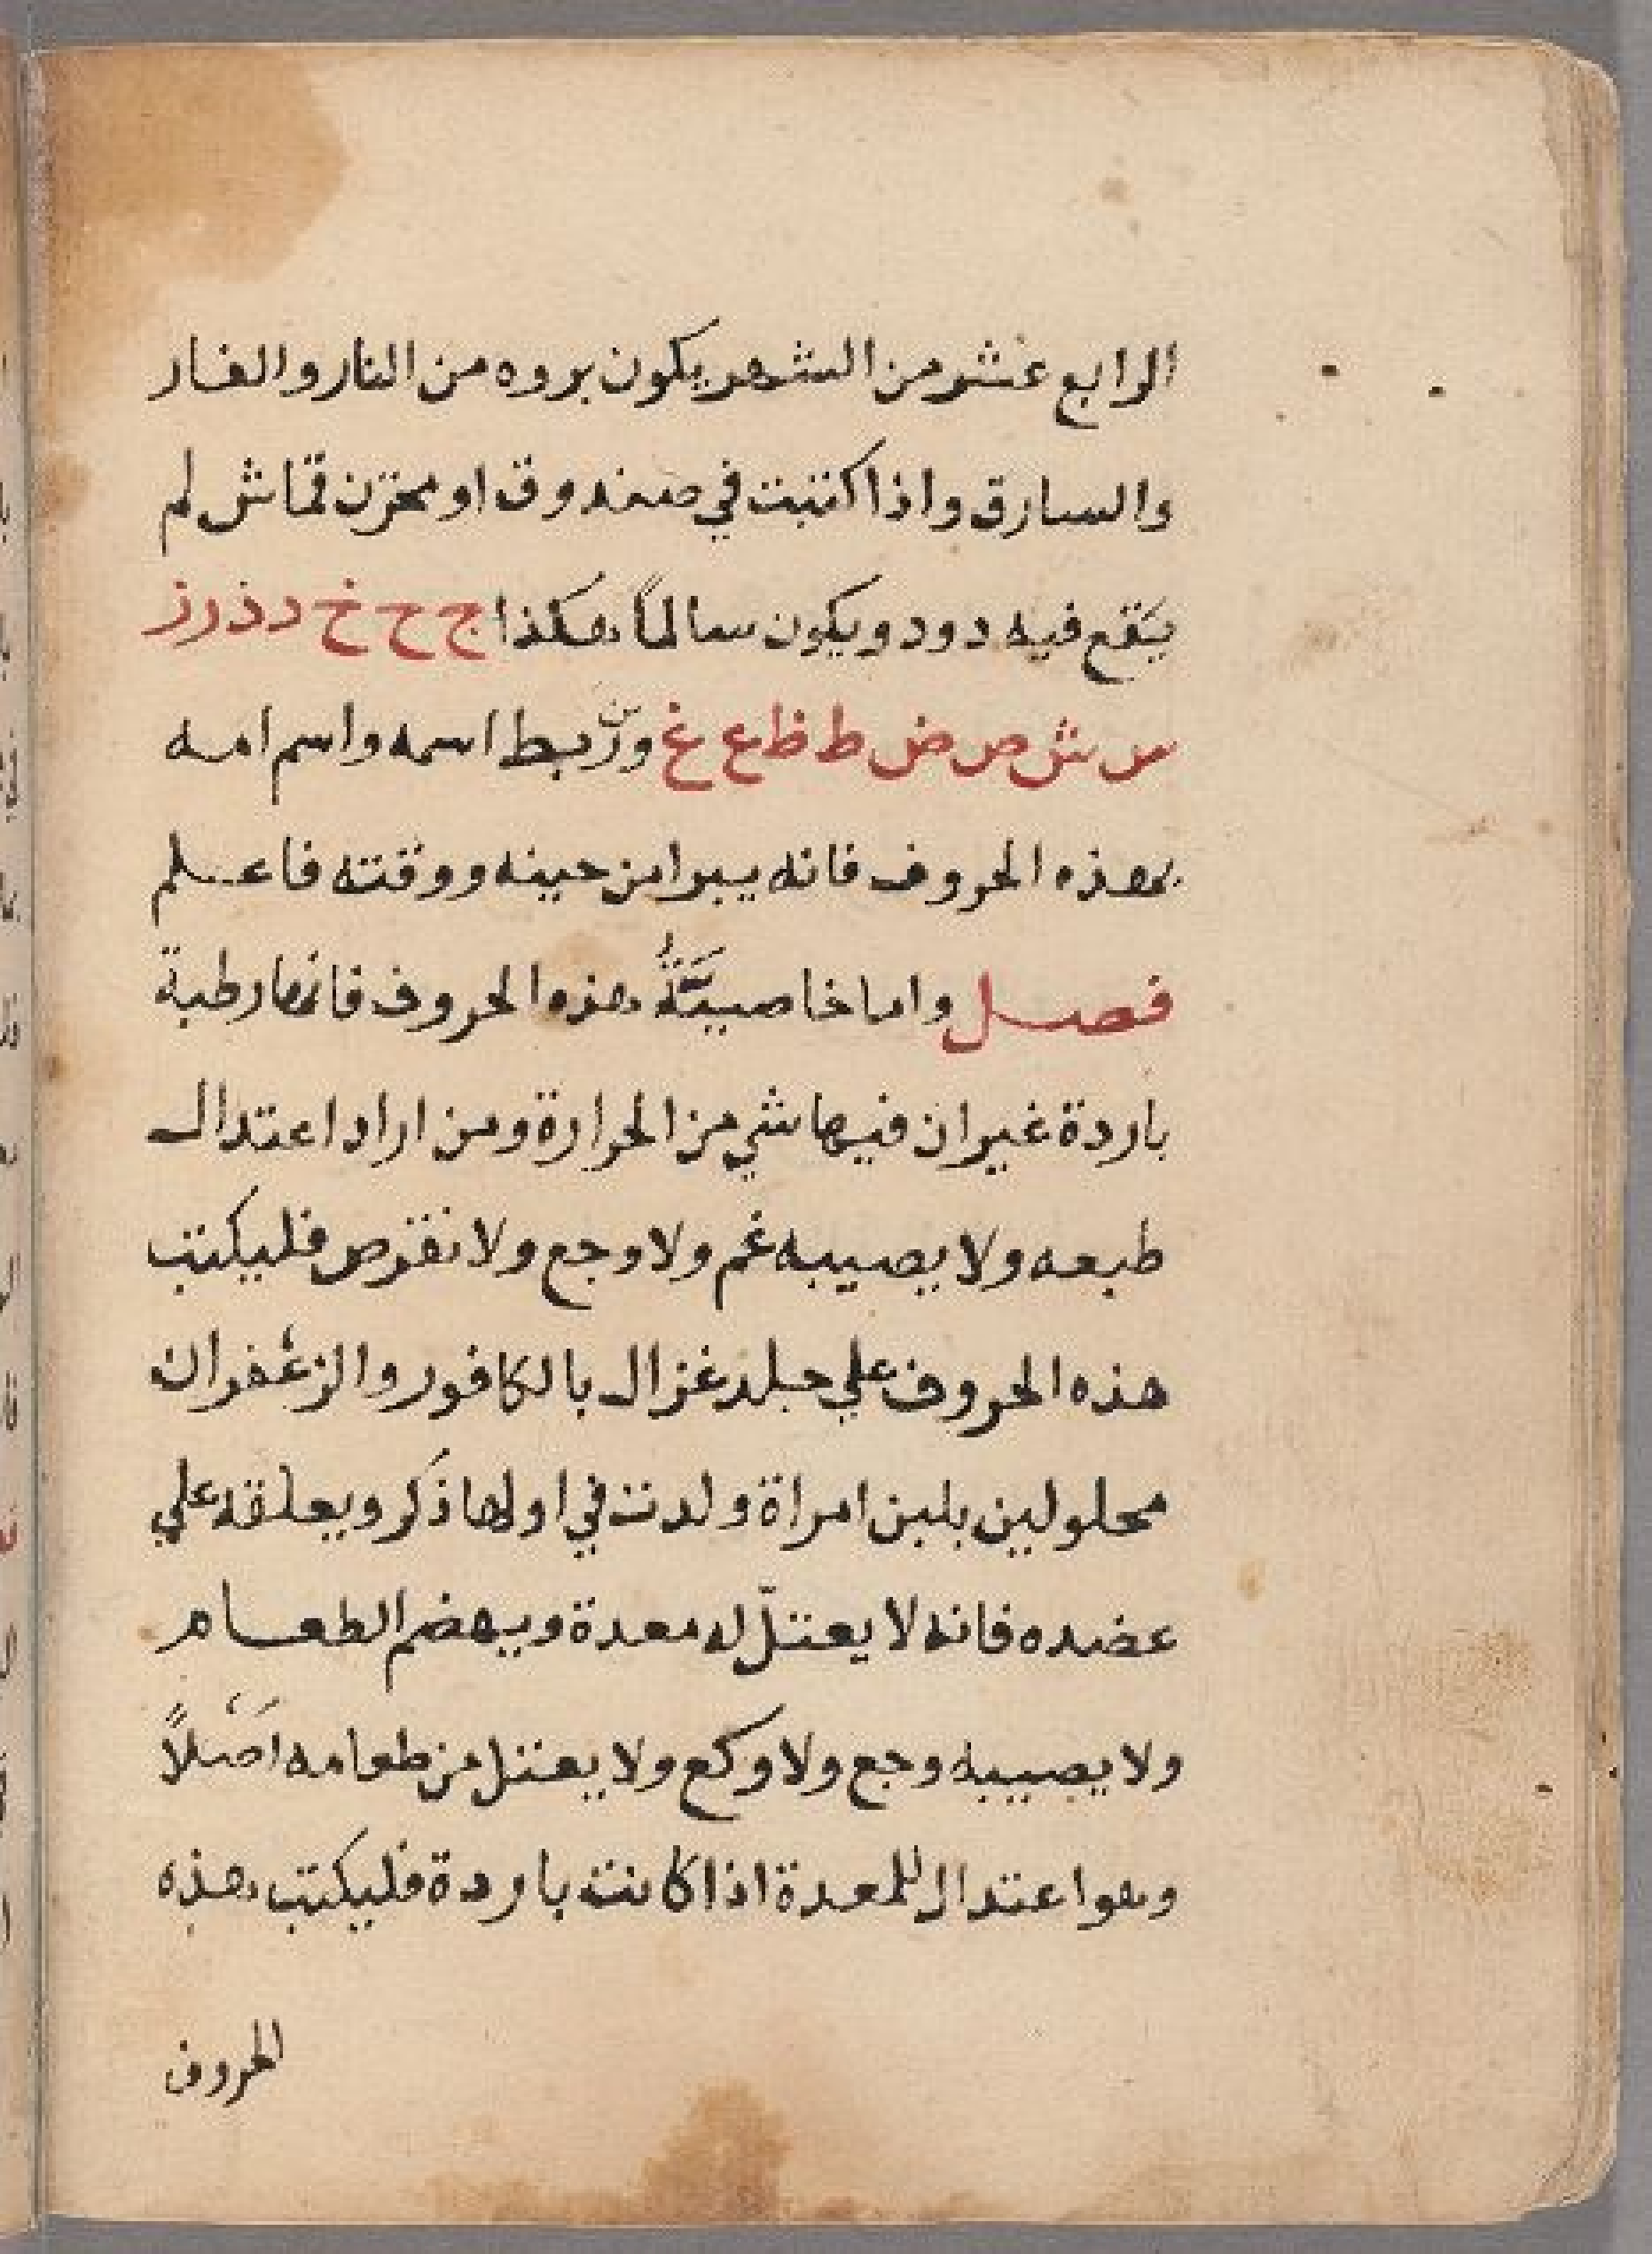 الرابع عشر من الشهر يكون بروه من النار والفار
والسارق واذا كتبت في صندوق او مخزن قماش لم
يقع فيه دود ويكون سالماً هكذا ج ح خ د ذ ر ز
س ش ص ض ط ظ ع غ وربط اسمه واسم امه
بهذه الحروف فانه يبرا من حينه ووقته فاعلم
فصل واما خاصية هذه الحروف فانها رطبة
باردة غير ان فيها شي من الحرارة ومن اراد اعتدال
طبعه ولا يصيبه غم ولا وجع ولا نقرص فليكتب
هذه الحروف علي جلد غزال بالكافور والزعفران
محلولين بلبن امراة ولدت في اولها ذكر ويعلقه علي
عضده فانه لا يعتلّ له معدة ويهضم الطعام
ولا يصيبه وجع ولا وكع ولا يعتل من طعامه اصلاً
وهو اعتدال للمعدة اذا كانت باردة فليكتب هذه
الحروف